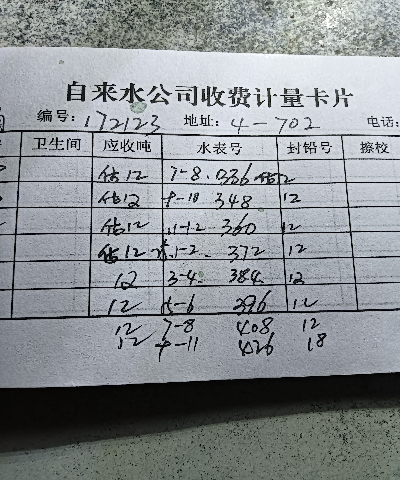 自来水公司收费计量卡片
编号: 172123 地址: 4-702 电话:
卫生间 应收吨 水表号 封铅号 擦校
估12 7-8. 336 估12
估12 9-10 348 12
估12 11-12 360 12
估12 1-2. 372 12
12 3-4. 384. 12
12 5-6 396 12
12 7-8 408 12
12 9-11 426 18